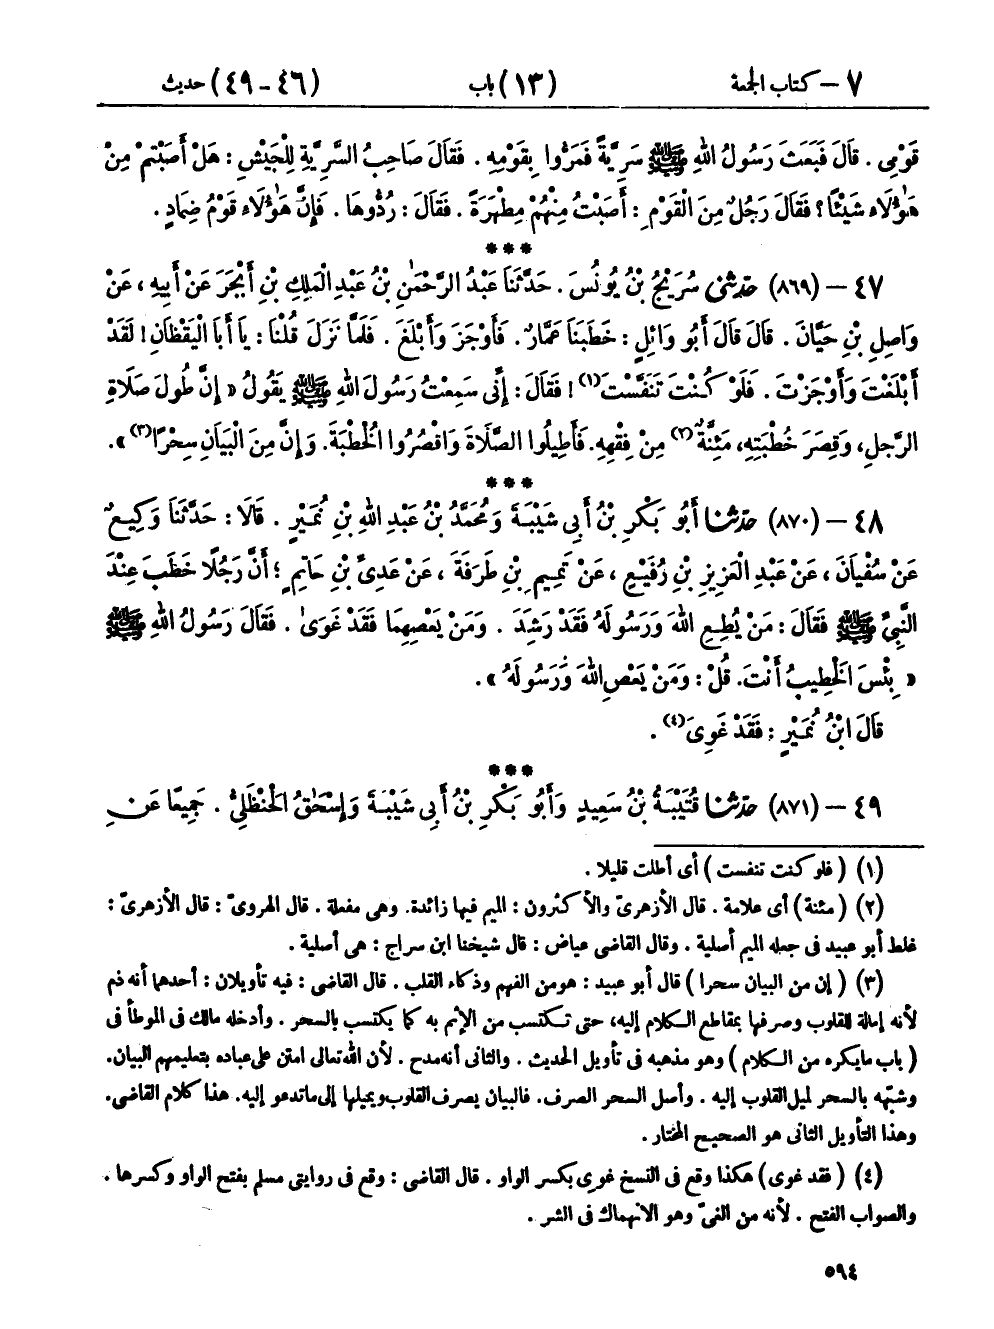 ٧ – كتاب الجمعة (١٣) باب (٤٦ – ٤٩) حديث
قَوْمِى . قَالَ فَبَعَثَ رَسُولُ اللهِ ﷺ سَرِيَّةً فَمَرُّوا بِقَوْمِهِ . فَقَالَ صَاحِبُ السَّرِيَّةِ لِلْجَيْشِ : هَلْ أَصَبْتُمْ مِنْ
هَٰؤُلَاءِ شَيْئًا ؟ فَقَالَ رَجُلٌ مِنَ الْقَوْمِ : أَصَبْتُ مِنْهُمْ مِطْهَرَةً . فَقَالَ : رُدُّوهَا . فَإِنَّ هَٰؤُلَاءِ قَوْمُ ضِمَادٍ .
***
٤٧ – (٨٦٩) حَدَّثَنِى سُرَيْجُ بْنُ يُونُسَ . حَدَّثَنَا عَبْدُ الرَّحْمَٰنِ بْنُ عَبْدِ الْمَلِكِ بْنِ أَبْجَرَ عَنْ أَبِيهِ ، عَنْ
وَاصِلِ بْنِ حَيَّانَ . قَالَ قَالَ أَبُو وَائِلٍ : خَطَبَنَا عَمَّارٌ . فَأَوْجَزَ وَأَبْلَغَ . فَلَمَّا نَزَلَ قُلْنَا : يَا أَبَا الْيَقْظَانِ ! لَقَدْ
أَبْلَغْتَ وَأَوْجَزْتَ . فَلَوْ كُنْتَ تَنَفَّسْتَ (١) ! فَقَالَ : إِنِّى سَمِعْتُ رَسُولَ اللهِ ﷺ يَقُولُ « إِنَّ طُولَ صَلَاةِ
الرَّجُلِ، وَقِصَرَ خُطْبَتِهِ، مَئِنَّةٌ (٢) مِنْ فِقْهِهِ. فَأَطِيلُوا الصَّلَاةَ وَاقْصُرُوا الْخُطْبَةَ. وَإِنَّ مِنَ الْبَيَانِ سِحْرًا (٣) » .
***
٤٨ – (٨٧٠) حَدَّثَنَا أَبُو بَكْرِ بْنُ أَبِى شَيْبَةَ وَمُحَمَّدُ بْنُ عَبْدِ اللهِ بْنِ نُمَيْرٍ . قَالَا : حَدَّثَنَا وَكِيعٌ
عَنْ سُفْيَانَ ، عَنْ عَبْدِ الْعَزِيزِ بْنِ رُفَيْعٍ ، عَنْ تَمِيمِ بْنِ طَرَفَةَ ، عَنْ عَدِىِّ بْنِ حَاتِمٍ ؛ أَنَّ رَجُلًا خَطَبَ عِنْدَ
النَّبِىِّ ﷺ فَقَالَ : مَنْ يُطِعِ اللهَ وَرَسُولَهُ فَقَدْ رَشَدَ . وَمَنْ يَعْصِهِمَا فَقَدْ غَوَىٰ . فَقَالَ رَسُولُ اللهِ ﷺ
« بِئْسَ الْخَطِيبُ أَنْتَ. قُلْ : وَمَنْ يَعْصِ اللهَ وَرَسُولَهُ » .
قَالَ ابْنُ نُمَيْرٍ : فَقَدْ غَوِىَ (٤) .
***
٤٩ – (٨٧١) حَدَّثَنَا قُتَيْبَةُ بْنُ سَعِيدٍ وَأَبُو بَكْرِ بْنُ أَبِى شَيْبَةَ وَإِسْحَٰقُ الْحَنْظَلِىُّ . جَمِيعًا عَنِ
(١) ( فلو كنت تنفست ) أى أطلت قليلا .
(٢) ( مئنة ) أى علامة . قال الأزهرىّ والأكثرون : الميم فيها زائدة. وهى مفعلة . قال الهروىّ : قال الأزهرىّ :
غلط أبو عبيد فى جعله الميم أصلية . وقال القاضى عياض : قال شيخنا ابن سراج : هى أصلية .
(٣) ( إن من البيان سحرا ) قال أبو عبيد : هو من الفهم وذكاء القلب . قال القاضى : فيه تأويلان : أحدها أنه ذم
لأنه إمالة للقلوب وصرفها بمقاطع الكلام إليه، حتى تكتسب من الإثم به كما يكتسب بالسحر . وأدخله مالك فى الموطأ فى
( باب ما يكره من الكلام ) وهو مذهبه فى تأويل الحديث . والثانى أنه مدح . لأن الله تعالى امتن على عباده بتعليمهم البيان.
وشبّهه بالسحر لميل القلوب إليه . وأصل السحر الصرف. فالبيان يصرف القلوب ويميلها إلى ما تدعو إليه. هذا كلام القاضى.
وهذا التأويل الثانى هو الصحيح المختار .
(٤) ( فقد غوى ) هكذا وقع فى النسخ غوِى بكسر الواو . قال القاضى : وقع فى روايتى مسلم بفتح الواو وكسرها .
والصواب الفتح . لأنه من الغىّ وهو الانهماك فى الشر .
٥٩٤